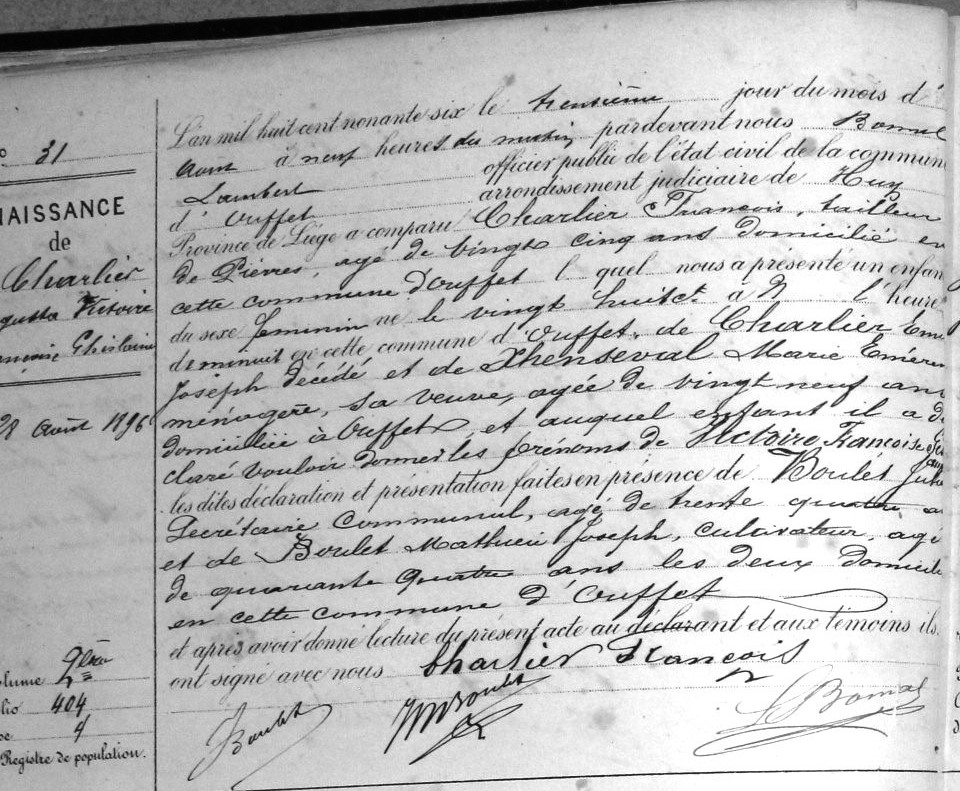 31
NAISSANCE
de
Charlier
Victoire
Ghislaine
28 août 1896
lume
lio 404
4
Registre de population.
L'an mil huit cent nonante six le trentième jour du mois d'
août à neuf heures du matin, pardevant nous Bomal
Lambert officier public de l'état civil de la commun
d'Ouffet arrondissement judiciaire de Huy
Province de Liége a comparu Charlier François, tailleur
de Pierres, agé de vingt cinq ans domicilié en
cette commune d'Ouffet l quel nous a présenté un enfan
du sexe feminin né le vingt huit ct à l'heure
de minuit en cette commune d'Ouffet, de Charlier
Joseph décédé et de Thenseval Marie
ménagère, sa veuve, agée de vingt neuf an
domiciliée à Ouffet et auquel enfant il a dé
claré vouloir donner les prénoms de Victoire Françoise
les dites déclaration et présentation faites en présence de Boulet
Secrétaire Communal, agé de trente quatre a
et de Boulet Mathieu Joseph, cultivateur, agé
de quarante quatre ans les deux domicili
en cette commune d'Ouffet
et après avoir donné lecture du présent acte au déclarant et aux témoins ils
ont signé avec nous Charlier François
JBoulet
Boulet
L Bomal